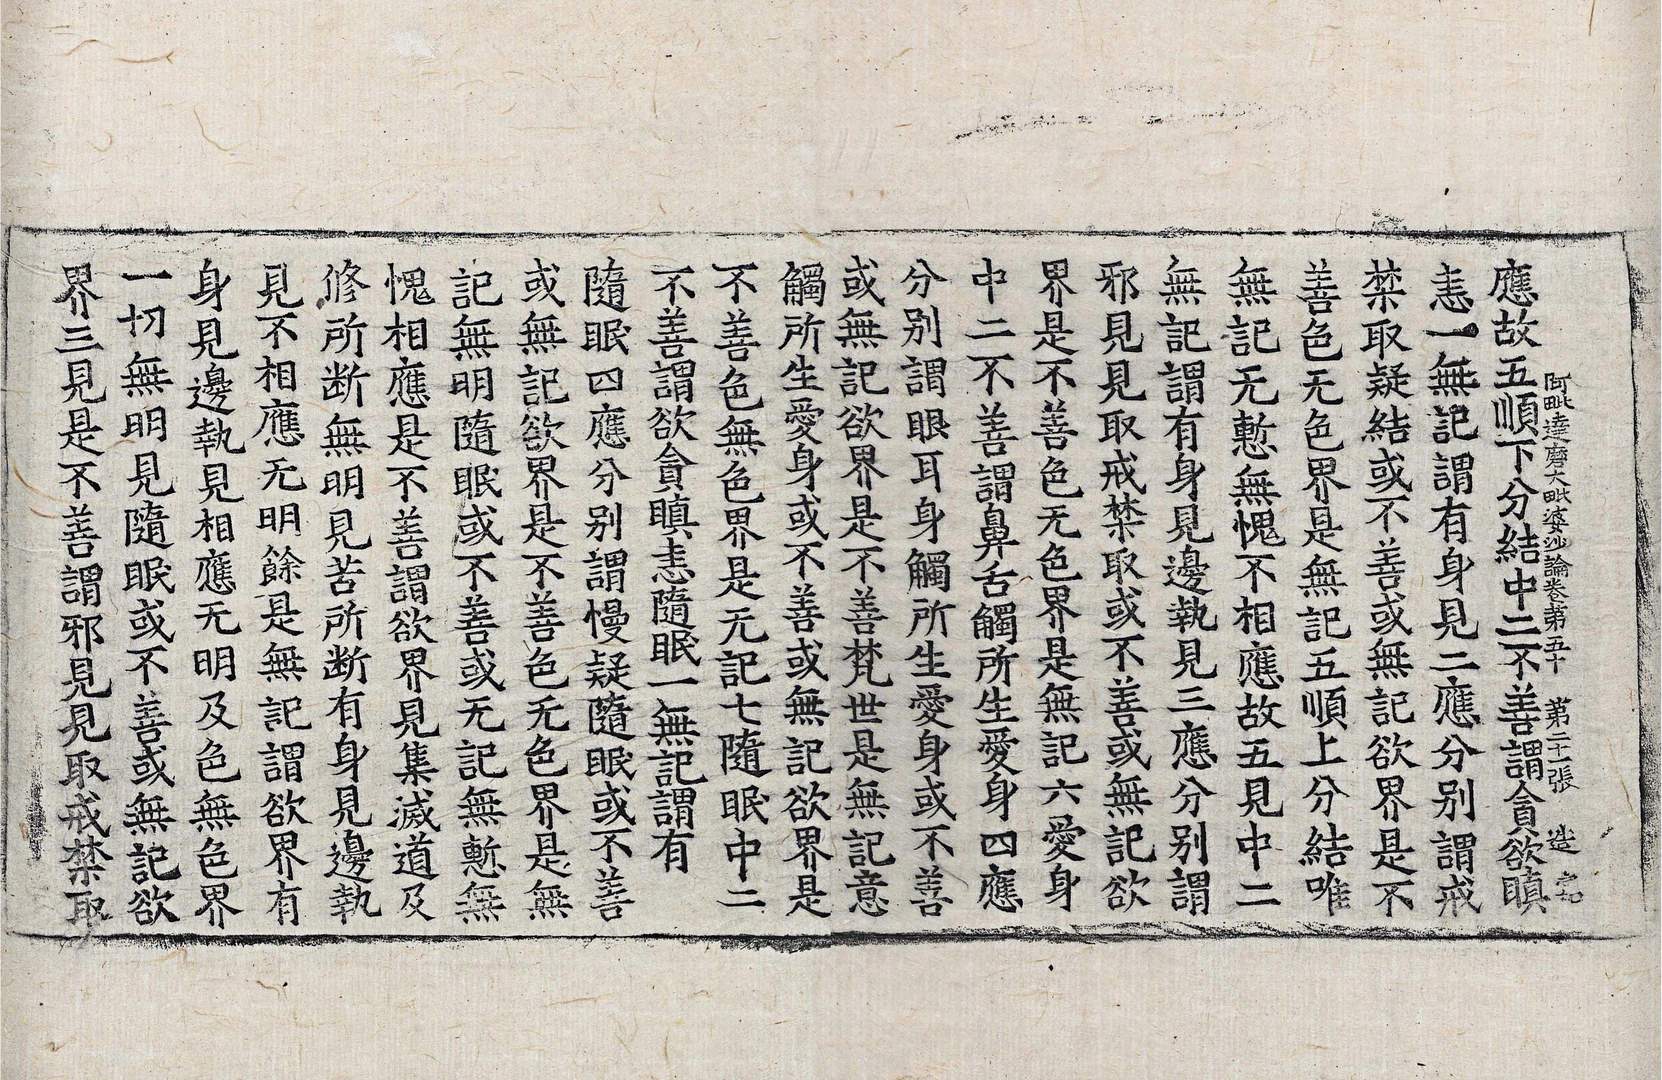 阿毗達磨大毗婆沙論卷第五十 第二十一張 造
應故五順下分結中二不善謂貪欲瞋
恚一無記謂有身見二應分別謂戒
禁取疑結或不善或無記欲界是不
善色无色界是無記五順上分結唯
無記无慙無愧不相應故五見中二
無記謂有身見邊執見三應分別謂
邪見見取戒禁取或不善或無記欲
界是不善色无色界是無記六愛身
中二不善謂鼻舌觸所生愛身四應
分別謂眼耳身觸所生愛身或不善
或無記欲界是不善梵世是無記意
觸所生愛身或不善或無記欲界是
不善色無色界是无記七隨眠中二
不善謂欲貪瞋恚隨眠一無記謂有
隨眠四應分別謂慢疑隨眠或不善
或無記欲界是不善色无色界是無
記無明隨眠或不善或无記無慙無
愧相應是不善謂欲界見集滅道及
修所断無明見苦所断有身見邊執
見不相應无明餘是無記謂欲界有
身見邊執見相應无明及色無色界
一切無明見隨眠或不善或無記欲
界三見是不善謂邪見見取戒禁取